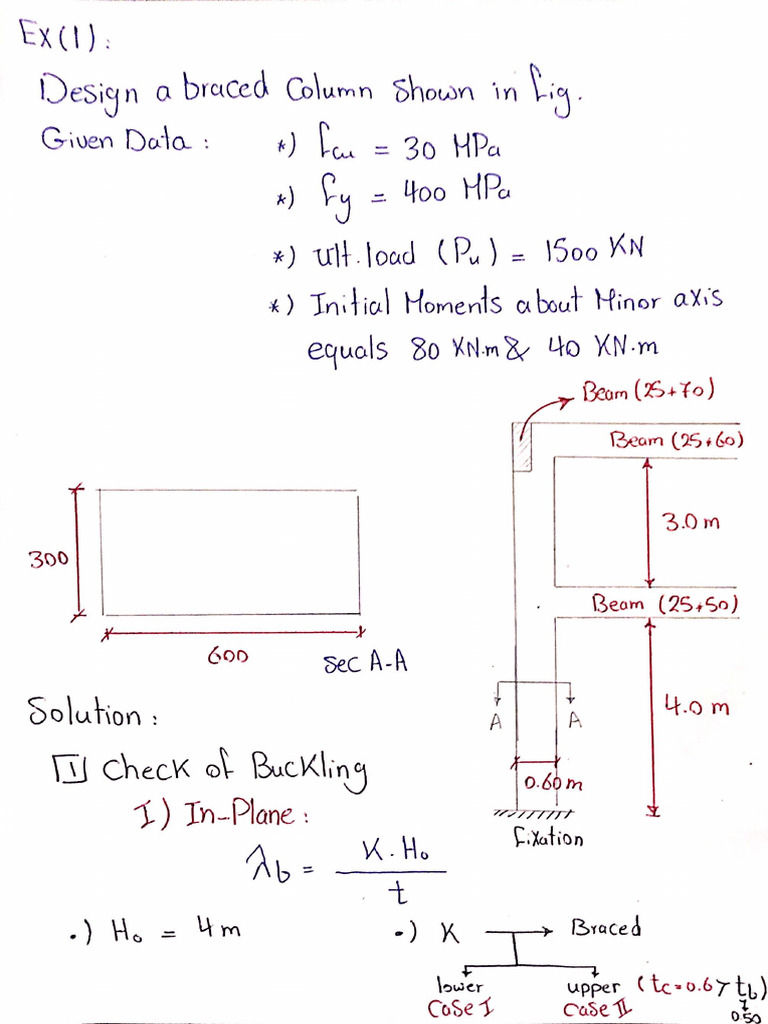 EX(1):
Design a braced Column Shown in fig.
Given Data : *) fcu = 30 MPa
*) fy = 400 MPa
*) ult.load (Pu) = 1500 KN
*) Initial Moments about Minor axis
equals 80 KN.m & 40 KN.m
Beam (25*70)
Beam (25*60)
3.0 m
300
Beam (25*50)
600
Sec A-A
A A
4.0 m
0.60 m
fixation
Solution :
1 Check of Buckling
I) In-Plane :
λb = K.Ho / t
.) Ho = 4m .) K → Braced
lower upper (tc=0.6 > tb)
Case I Case II 0.50